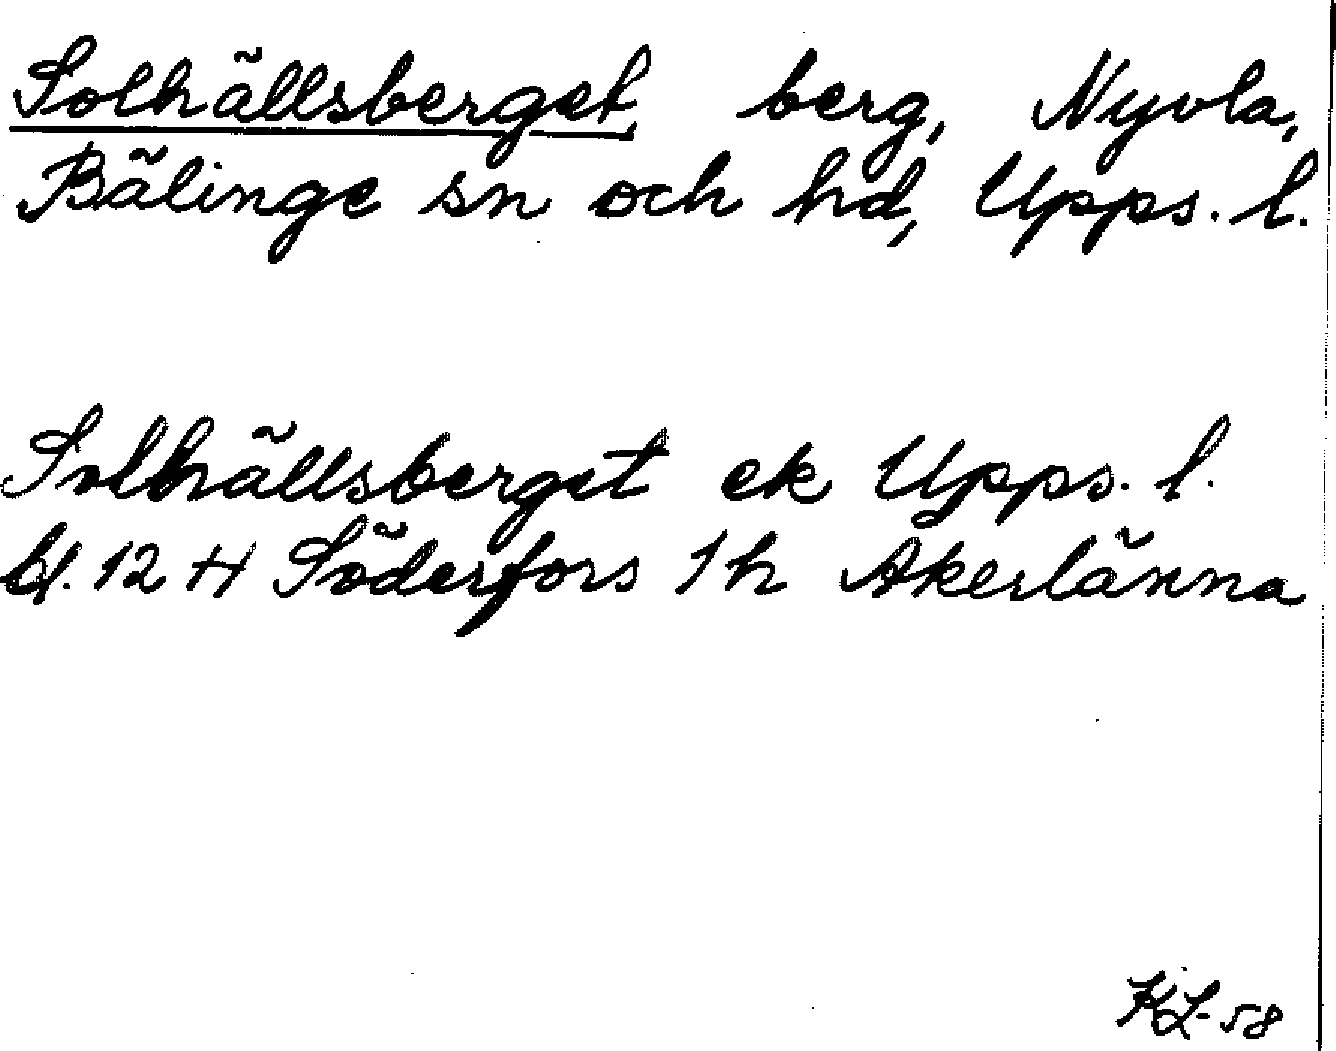 Solhällsberget, berg, Nyvla,
Bälinge sn och hd, Upps. l.
Solhällsberget ek Upps. l.
bl. 12 H Söderfors 1 h Åkerlänna
KL-58